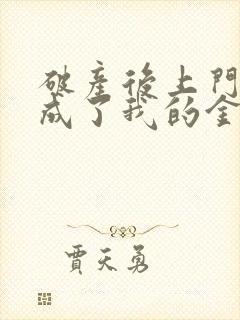 破產後上門
成了我的金
賈天勇